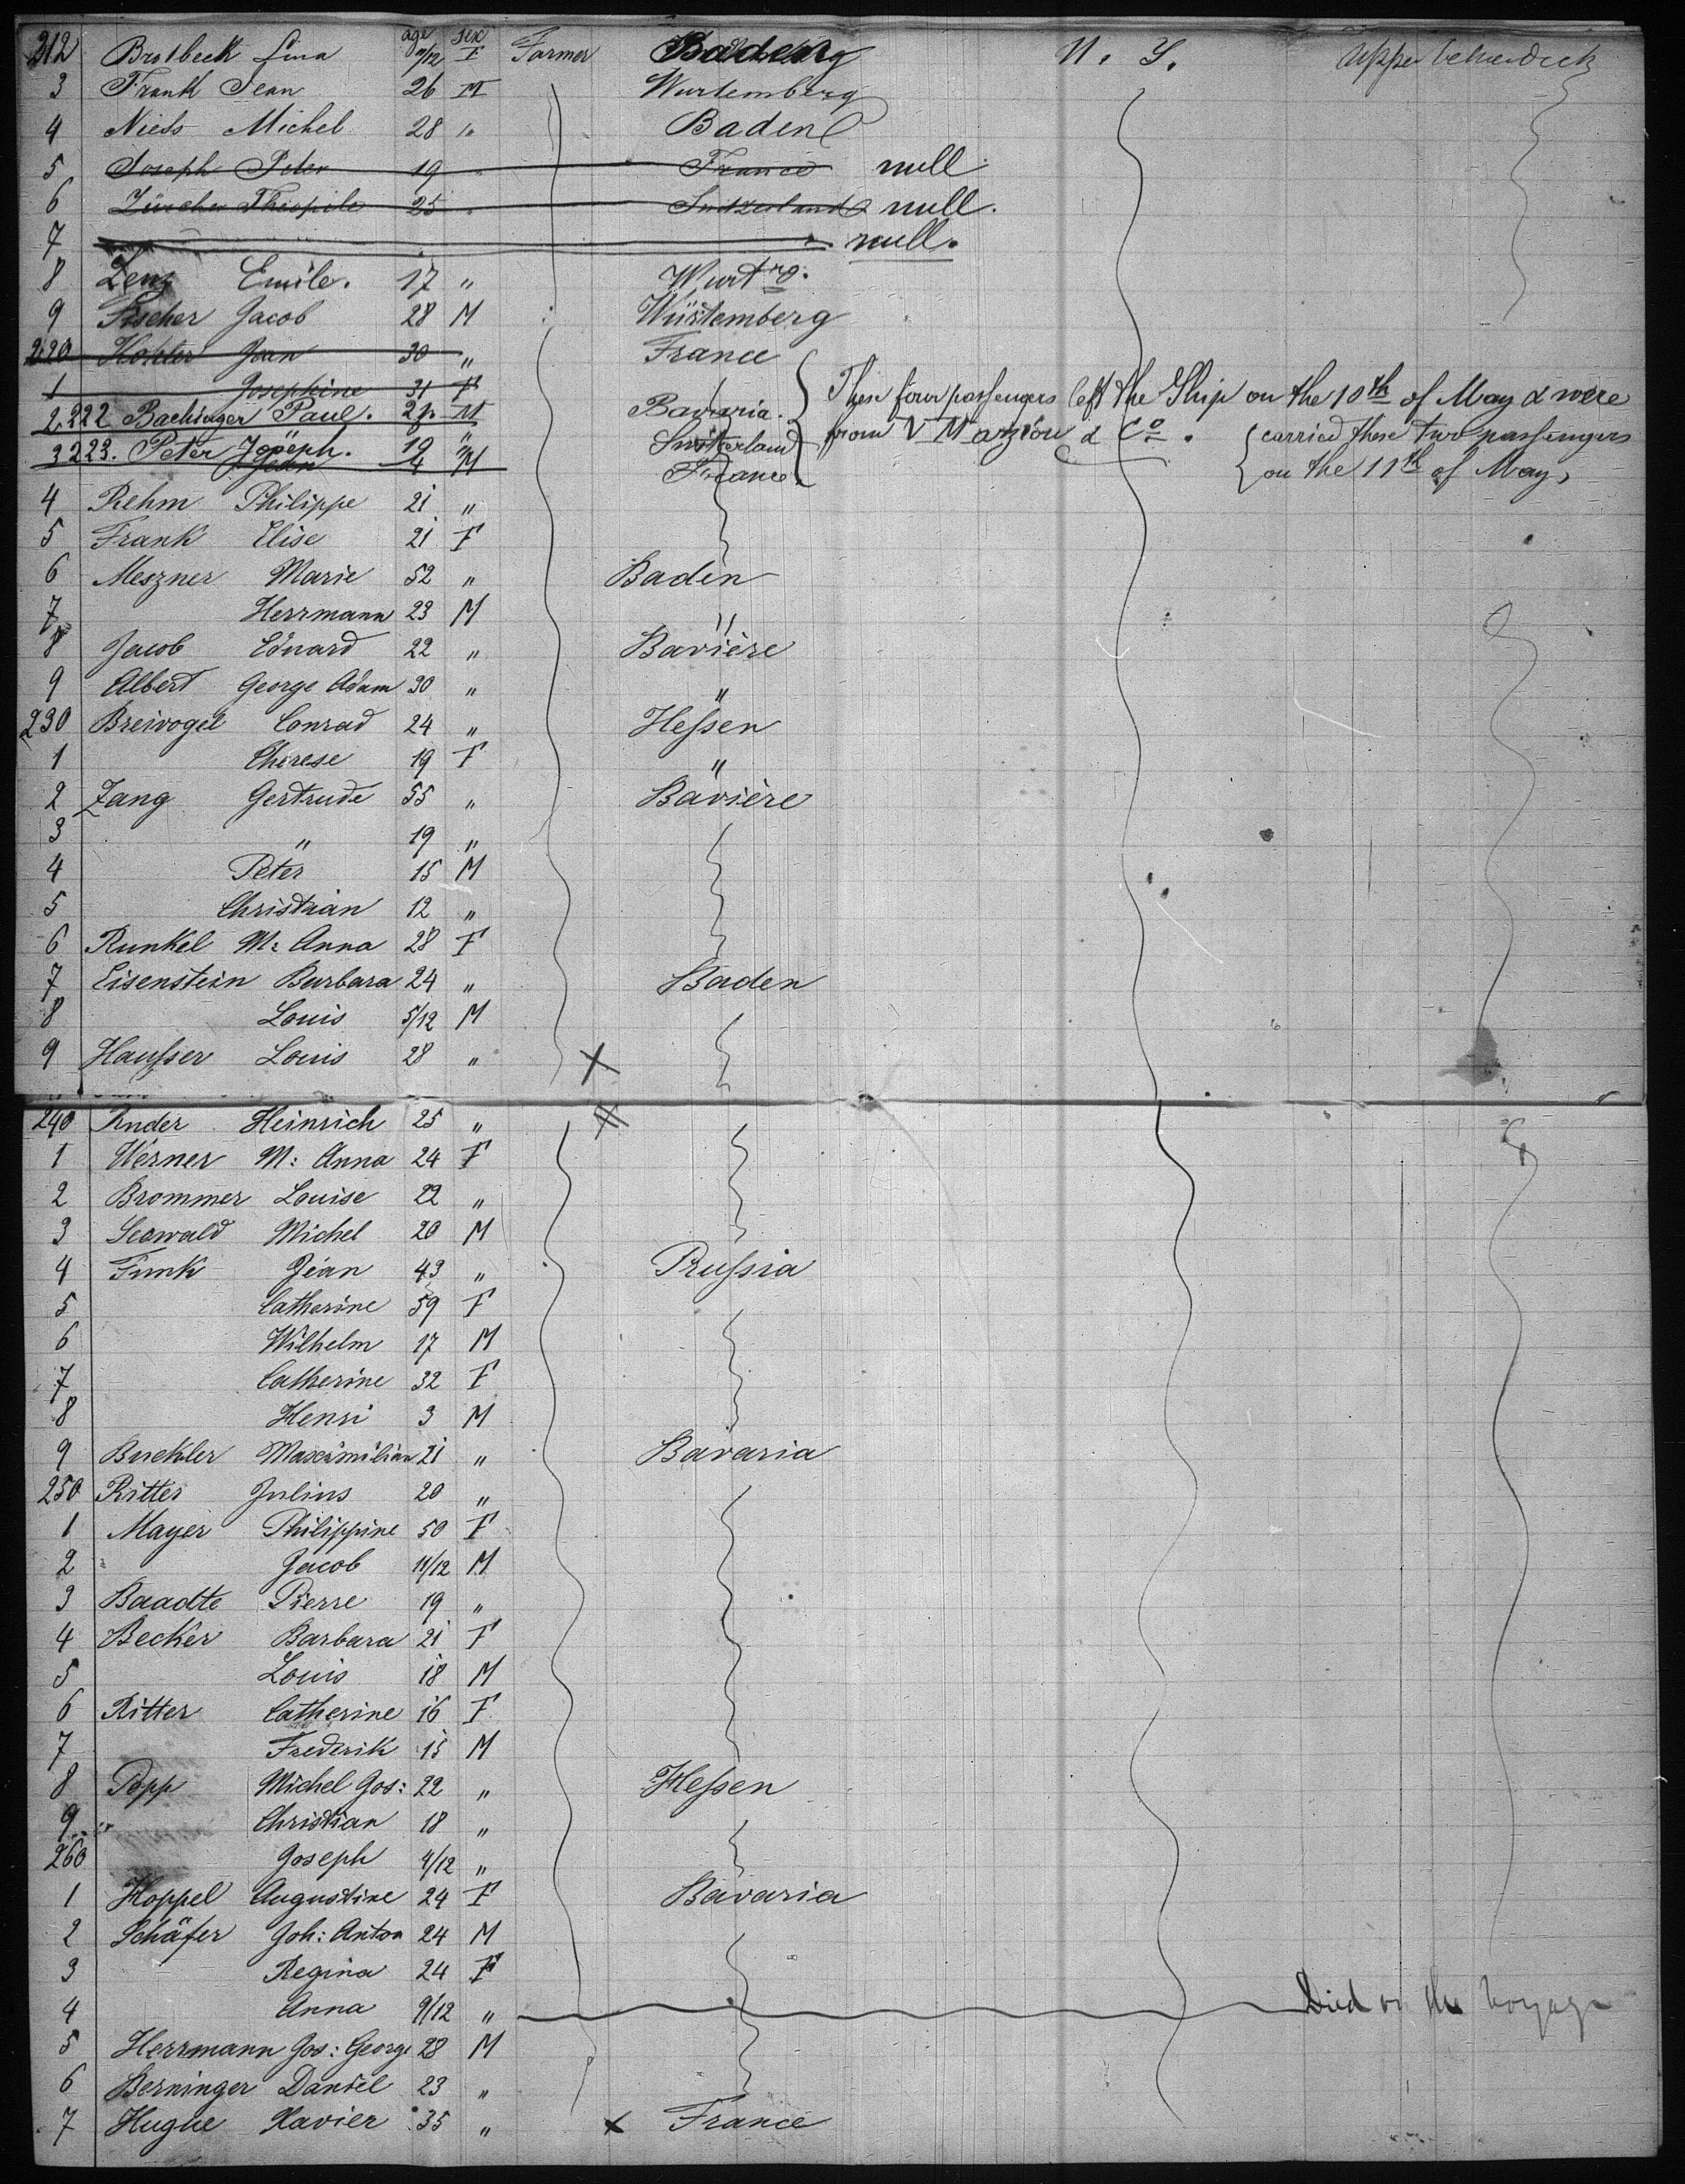 age Sex
212 Brotbeck Lina /12 F Farmer Baden N. Y. Upper betweendeck
3 Frank Jean 26 M Wurtemberg
4 Niets Michel 28 " Baden
5 Joseph Peter 19 " France null
6 Zürcher Théophile 25 " Switzerland null.
7 null.
8 Zenz Emile. 17 " Wurtrg.
9 Fischer Jacob 28 M Würtemberg
220 Kohler Jean 30 " France
1 Josephine 31 F
2,222 Bachinger Paul. 28 M Bavaria. These four passengers left the Ship on the 10th of May & were
3223. Peter Joseph. 19 " Switzerland from V Marzion & Co. carried these two passengers
Jean 4 M France on the 11th of May,
4 Rehm Philippe 21 "
5 Frank Elise 21 F
6 Meszner Marie 52 " Baden
7 Herrmann 23 M "
8 Jacob Eduard 22 " Bavière
9 Albert George Adam 30 " "
230 Breivogel Conrad 24 " Hessen
1 Therese 19 F "
2 Zang Gertrude 55 " Bavière
3 " 19 "
4 Peter 15 M
5 Christian 12 "
6 Runkel M: Anna 28 F
7 Eisenstein Barbara 24 " Baden
8 Louis 5/12 M
9 Hausser Louis 28 " X
240 Ruder Heinrich 25 " X
1 Werner M: Anna 24 F
2 Brommer Louise 22 "
3 Seewald Michel 20 M
4 Funk Jean 43 " Prussia
5 Catherine 59 F
6 Wilhelm 17 M
7 Catherine 32 F
8 Henri 3 M
9 Buckler Maximilian 21 " Bavaria
250 Ritter Julius 20 "
1 Mayer Philippine 50 F
2 Jacob 11/12 M
3 Baadte Pierre 19 "
4 Becker Barbara 21 F
5 Louis 18 M
6 Ritter Catherine 16 F
7 Frederik 15 M
8 Popp Michel Jos: 22 " Hessen
9 " Christian 18 "
260 Joseph 4/12 "
1 Hoppel Augustine 24 F Bavaria
2 Schäfer Joh: Anton 24 M
3 Regina 24 F
4 Anna 9/12 " Died on the voyage
5 Herrmann Jos: George 28 M
6 Berninger Daniel 23 "
7 Hugue Xavier 35 " x France